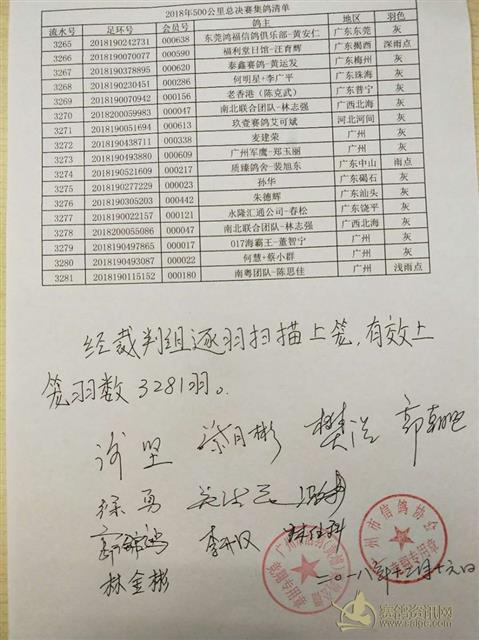 2018年500公里总决赛集鸽清单
流水号 足环号 会员号 鸽主 地区 羽色
3265 2018190242731 000638 东莞鸿福信鸽俱乐部-黄安仁 广东东莞 灰
3266 2018190070077 000590 福利堂日馆-汪育辉 广东揭西 深雨点
3267 2018190378895 000620 泰鑫赛鸽-黄运发 广东梅州 灰
3268 2018190230451 000286 何明星+李广平 广东珠海 灰
3269 2018190070942 000156 老香港（陈克武） 广东普宁 灰
3270 2018200059983 000047 南北联合团队-林志强 广西北海 灰
3271 2018190051694 000613 玖壹赛鸽艾可斌 河北河间 灰
3272 2018190438711 000338 麦建荣 广州 灰
3273 2018190493880 000609 广州军鹰-郑玉丽 广州 灰
3274 2018190521609 000217 质臻鸽舍-裴旭东 广东中山 雨点
3275 2018190277229 000023 孙华 广东碣石 灰
3276 2018190305203 000442 朱德辉 广东汕头 灰
3277 2018190022157 000121 永隆汇通公司-春松 广东饶平 灰
3278 2018200055086 000047 南北联合团队-林志强 广西北海 灰
3279 2018190497865 000017 017海霸王-董智宁 广州 灰
3280 2018190493087 000022 何慧+蔡小群 广州 灰
3281 2018190115152 000180 南粤团队-陈思佳 广州 浅雨点
经裁判组逐羽扫描上笼,有效上
笼羽数3281羽。
谢坚 樊浩
徐勇
林金彬
广州市信鸽协会
二〇一八年十二月十六日
赛鸽资讯网
www.saipg.com